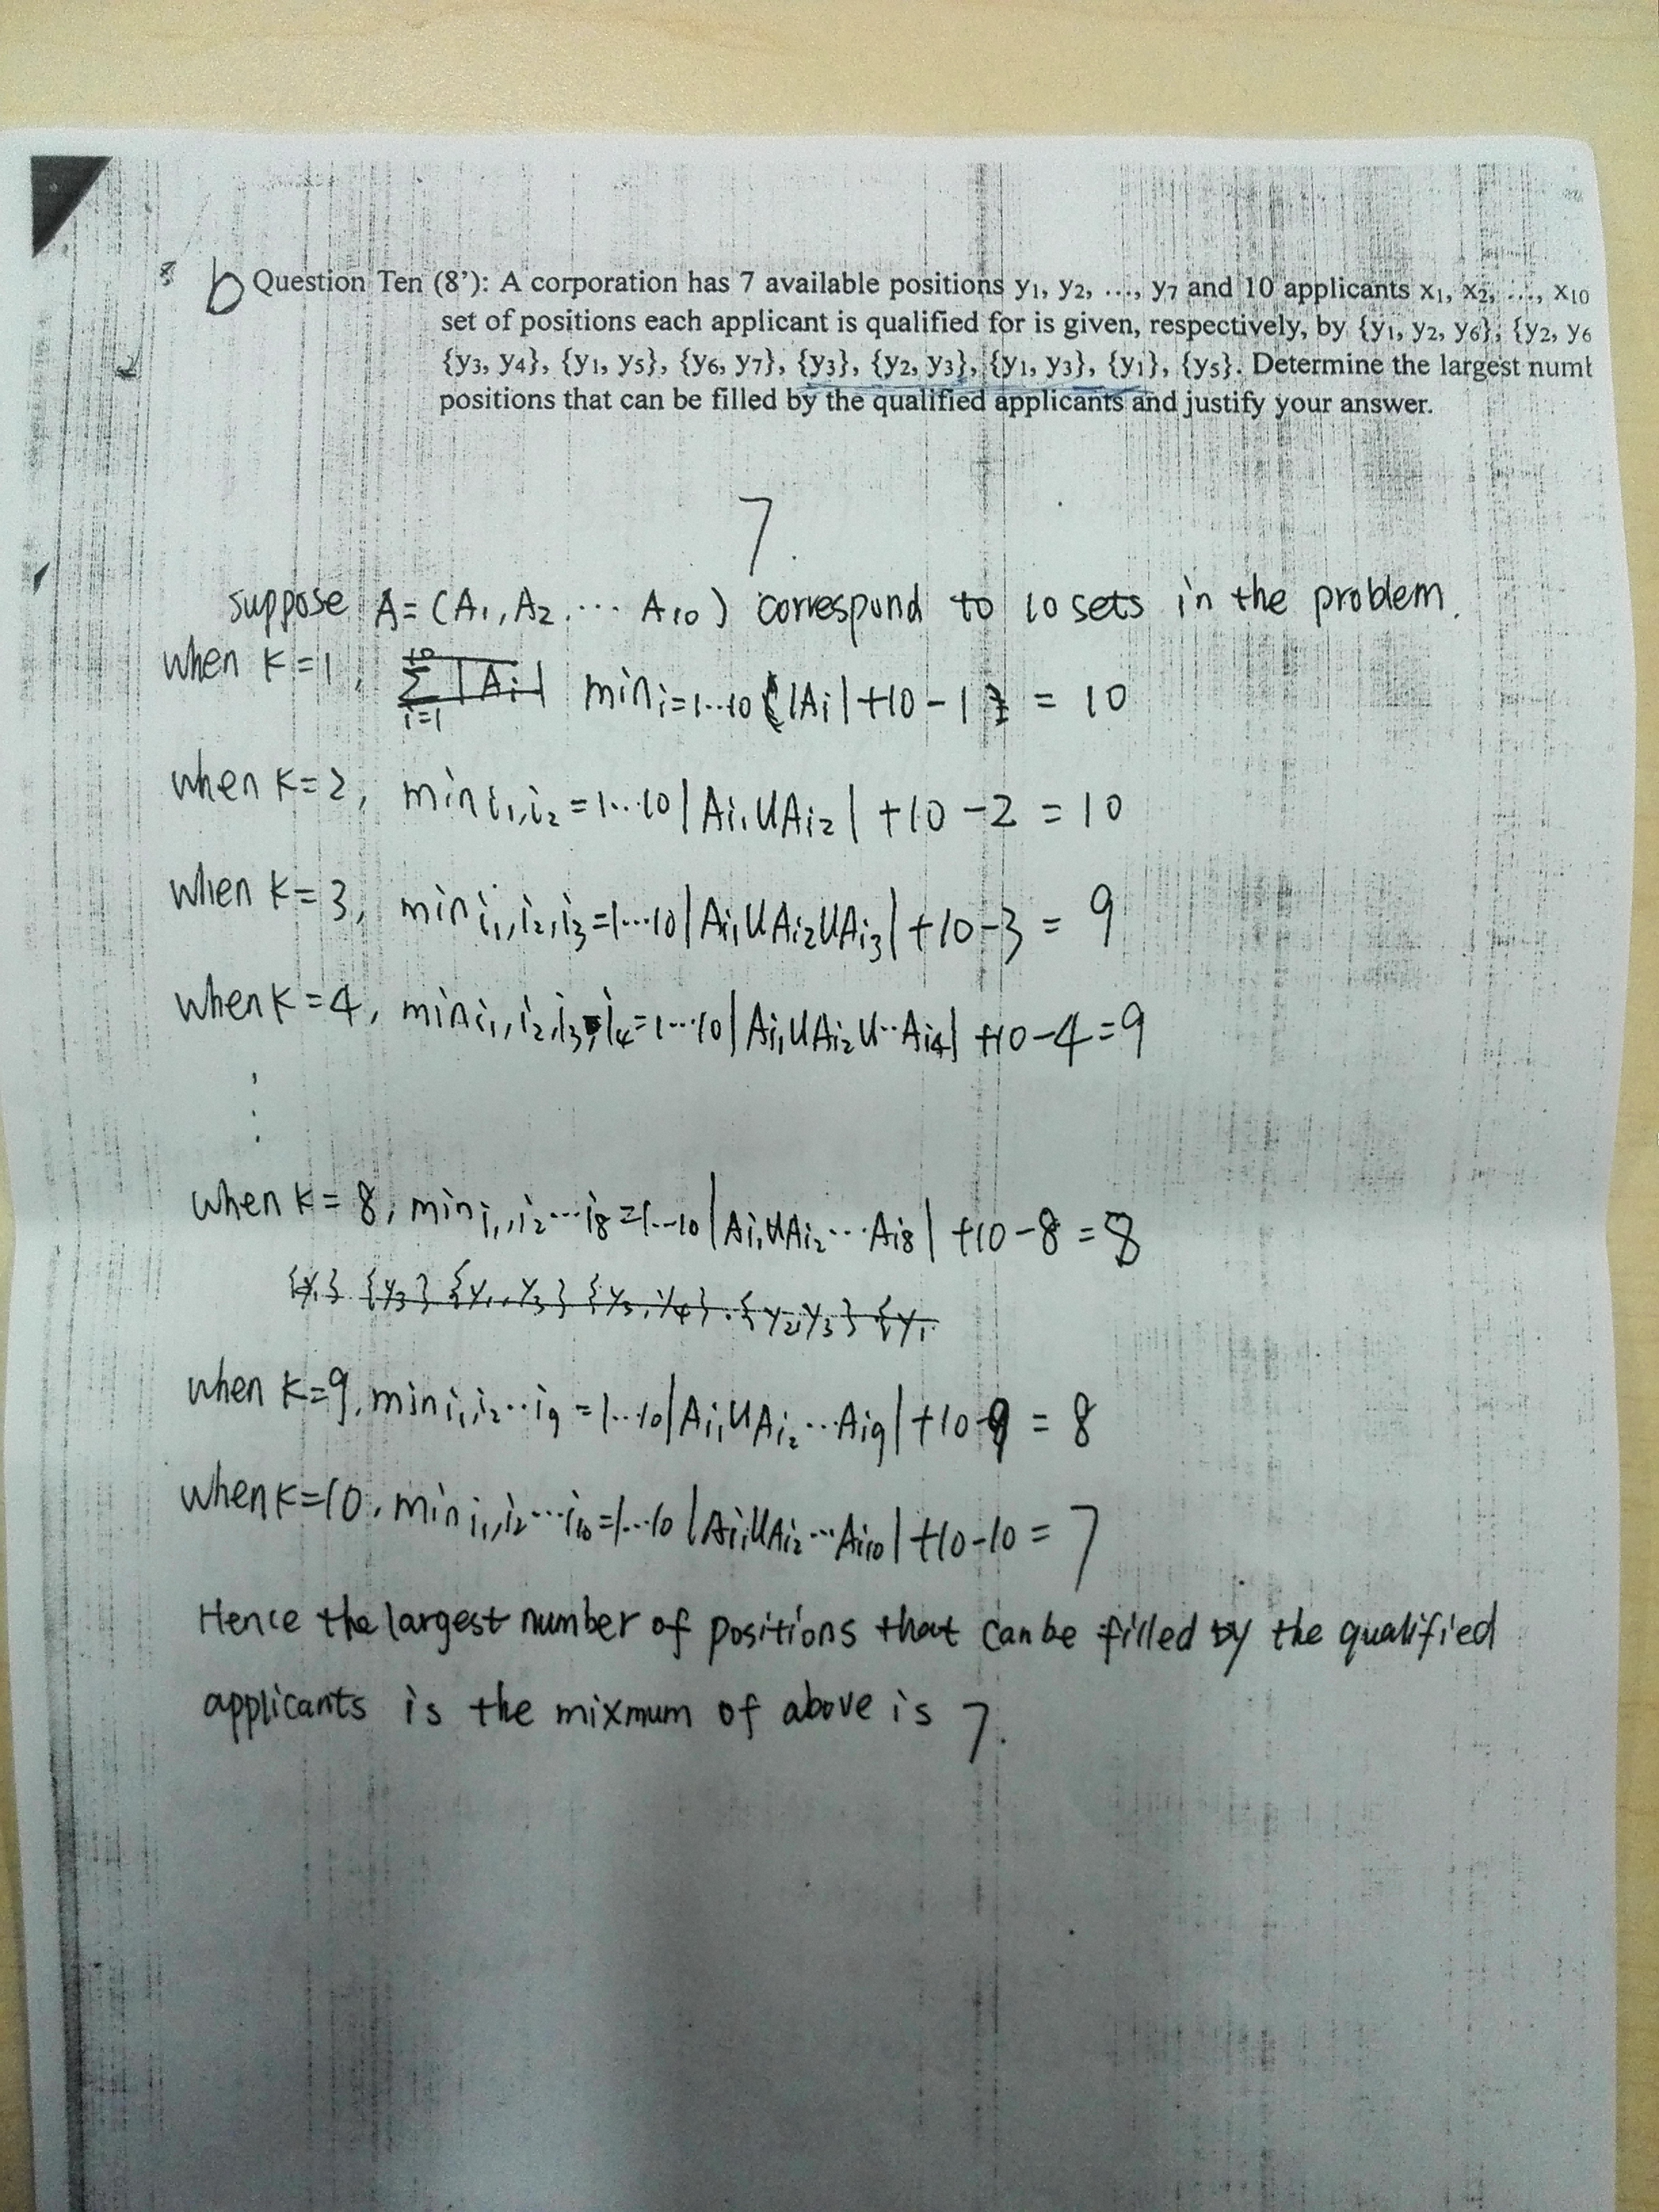 b Question Ten (8'): A corporation has 7 available positions y1, y2, ..., y7 and 10 applicants x1, x2, ..., x10
set of positions each applicant is qualified for is given, respectively, by {y1, y2, y6}, {y2, y6
{y3, y4}, {y1, y5}, {y6, y7}, {y3}, {y2, y3}, {y1, y3}, {y1}, {y5}. Determine the largest numb
positions that can be filled by the qualified applicants and justify your answer.
7.
suppose A=(A1, A2 ... A10) correspond to 10 sets in the problem.
when K=1, Σ i=1 10 |Ai| min i=1...10 {|Ai|+10-1} = 10
when K=2, min i1,i2=1...10 |Ai1UAi2| +10-2 = 10
when K=3, min i1,i2,i3=1...10 |Ai1UAi2UAi3| +10-3 = 9
when K=4, min i1,i2,i3,i4=1...10 |Ai1UAi2U..Ai4| +10-4=9
⋮
when K=8, min i1,i2...i8=1...10 |Ai1UAi2...Ai8| +10-8=8
{y1} {y3} {y1, y3} {y3, y4}. {y2, y3} {y1
when K=9, min i1,i2...i9=1...10 |Ai1UAi2...Ai9| +10-9 = 8
when K=10, min i1,i2...i10=1...10 |Ai1UAi2...Ai10| +10-10 = 7
Hence the largest number of positions that can be filled by the qualified
applicants is the mixmum of above is 7.